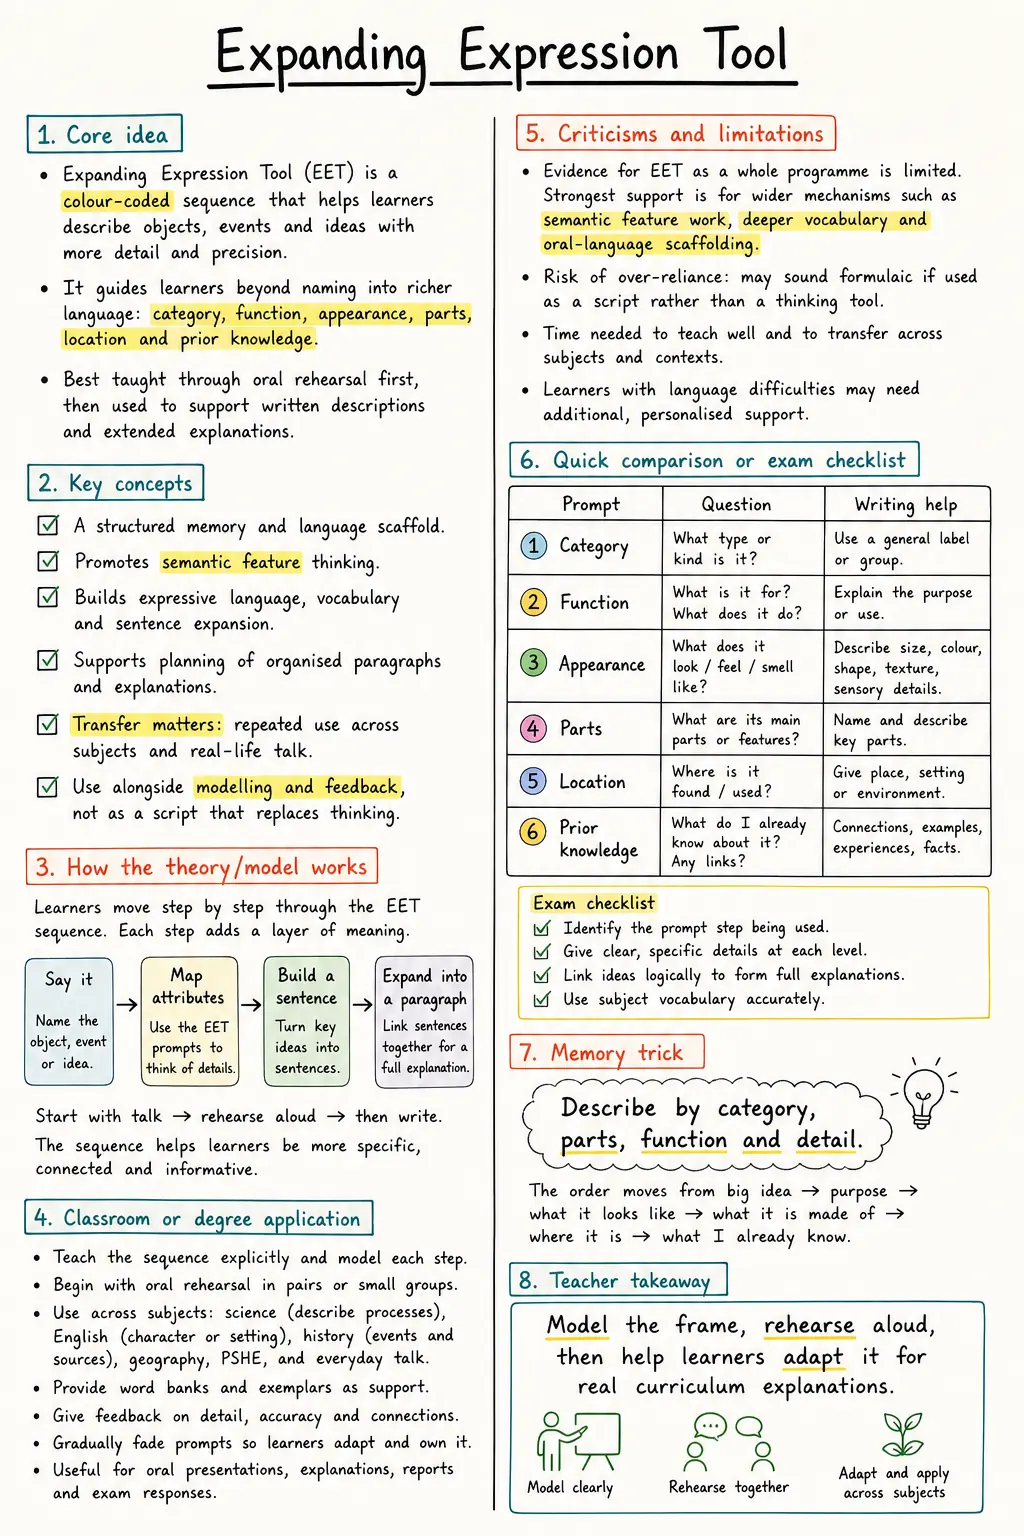 Expanding Expression Tool
1. Core idea
• Expanding Expression Tool (EET) is a
colour-coded sequence that helps learners
describe objects, events and ideas with
more detail and precision.
• It guides learners beyond naming into richer
language: category, function, appearance, parts,
location and prior knowledge.
• Best taught through oral rehearsal first,
then used to support written descriptions
and extended explanations.
2. Key concepts
A structured memory and language scaffold.
Promotes semantic feature thinking.
Builds expressive language, vocabulary
and sentence expansion.
Supports planning of organised paragraphs
and explanations.
Transfer matters: repeated use across
subjects and real-life talk.
Use alongside modelling and feedback,
not as a script that replaces thinking.
3. How the theory/model works
Learners move step by step through the EET
sequence. Each step adds a layer of meaning.
Say it
Name the
object, event
or idea.
→
Map
attributes
Use the EET
prompts to
think of details.
→
Build a
sentence
Turn key
ideas into
sentences.
→
Expand into
a paragraph
Link sentences
together for a
full explanation.
Start with talk → rehearse aloud → then write.
The sequence helps learners be more specific,
connected and informative.
4. Classroom or degree application
• Teach the sequence explicitly and model each step.
• Begin with oral rehearsal in pairs or small groups.
• Use across subjects: science (describe processes),
English (character or setting), history (events and
sources), geography, PSHE, and everyday talk.
• Provide word banks and exemplars as support.
• Give feedback on detail, accuracy and connections.
• Gradually fade prompts so learners adapt and own it.
• Useful for oral presentations, explanations, reports
and exam responses.
5. Criticisms and limitations
• Evidence for EET as a whole programme is limited.
Strongest support is for wider mechanisms such as
semantic feature work, deeper vocabulary and
oral-language scaffolding.
• Risk of over-reliance: may sound formulaic if used
as a script rather than a thinking tool.
• Time needed to teach well and to transfer across
subjects and contexts.
• Learners with language difficulties may need
additional, personalised support.
6. Quick comparison or exam checklist
Prompt Question Writing help
1 Category
What type or
kind is it?
Use a general label
or group.
2 Function
What is it for?
What does it do?
Explain the purpose
or use.
3 Appearance
What does it
look / feel / smell
like?
Describe size, colour,
shape, texture,
sensory details.
4 Parts
What are its main
parts or features?
Name and describe
key parts.
5 Location
Where is it
found / used?
Give place, setting
or environment.
6 Prior
knowledge
What do I already
know about it?
Any links?
Connections, examples,
experiences, facts.
Exam checklist
Identify the prompt step being used.
Give clear, specific details at each level.
Link ideas logically to form full explanations.
Use subject vocabulary accurately.
7. Memory trick
Describe by category,
parts, function and detail.
The order moves from big idea → purpose →
what it looks like → what it is made of →
where it is → what I already know.
8. Teacher takeaway
Model the frame, rehearse aloud,
then help learners adapt it for
real curriculum explanations.
Model clearly
Rehearse together
Adapt and apply
across subjects